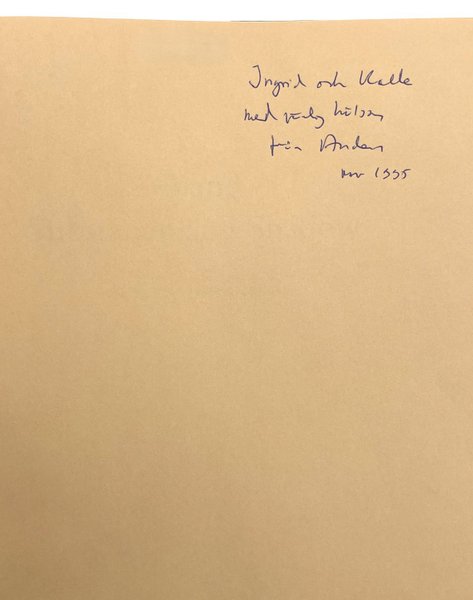 Ingrid och Kalle
med vänlig hälsn
från Anders
nov 1995